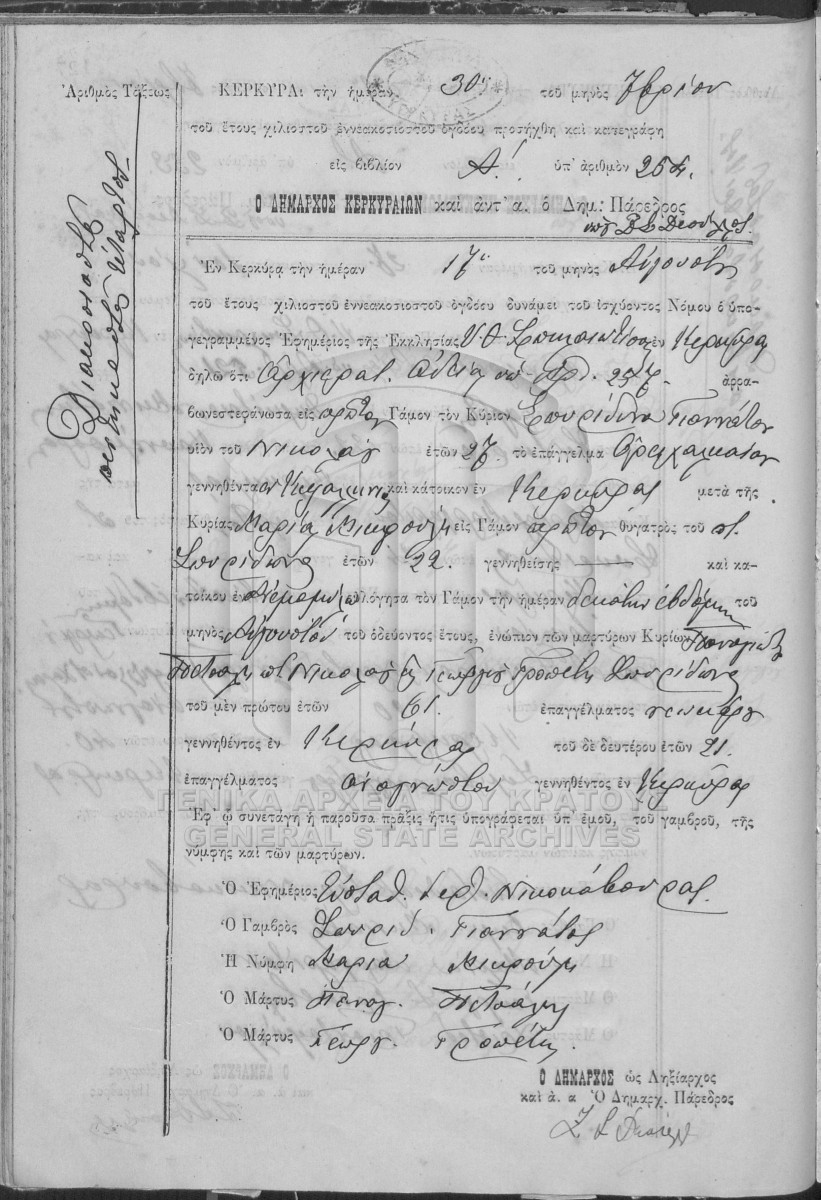 Ἀριθμὸς Τάξεως
Διακοσιοστὴ
πεντηκοστὴ τετάρτη
ΚΕΡΚΥΡΑι τὴν ἡμέραν 30ην τοῦ μηνὸς 7βρίου
τοῦ ἔτους χιλιοστοῦ ἐννεακοσιοστοῦ ὀγδόου προσήχθη καὶ κατεγράφη
εἰς βιβλίον Α! ὑπ' ἀριθμὸν 254.
Ο ΔΗΜΑΡΧΟΣ ΚΕΡΚΥΡΑΙΩΝ καὶ ἀντ' α. ὁ Δημ: Πάρεδρος
Ἐν Κερκύρᾳ τὴν ἡμέραν 17ην τοῦ μηνὸς Αὐγούστου
τοῦ ἔτους χιλιοστοῦ ἐννεακοσιοστοῦ ὀγδόου δυνάμει τοῦ ἰσχύοντος Νόμου ὁ ὑπο-
γεγραμμένος Ἐφημέριος τῆς Ἐκκλησίας Υ. Θ. Σπηλαιωτίσσης ἐν Κερκύρᾳ
δηλῶ ὅτι Ἀρχιερατ. Ἀδείᾳ ὑπ' ἀρ. 257. ἀρρα-
βωνεστεφάνωσα εἰς πρῶτον Γάμον τὸν Κύριον Σπυρίδωνα Γιαννάτον
υἱὸν τοῦ Νικολάου ἐτῶν 27 τὸ ἐπάγγελμα
γεννηθέντα ἐν Κεφαλληνίᾳ καὶ κάτοικον ἐν Κερκύρᾳ μετὰ τῆς
Κυρίας Μαρία Μικρούλη εἰς Γάμον πρῶτον θυγατρὸς τοῦ π.
Σπυρίδωνος ἐτῶν 22. γεννηθείσης — καὶ κα-
τοίκου ἐν εὐλόγησα τὸν Γάμον τὴν ἡμέραν δεκάτην ἑβδόμην τοῦ
μηνὸς Αὐγούστου τοῦ ὁδεύοντος ἔτους, ἐνώπιον τῶν μαρτύρων Κυρίων Παναγιώτη
Πετσάλη π. Νικολάου καὶ Γεωργίου Τροπέτη Σπυρίδωνος
τοῦ μὲν πρώτου ἐτῶν 61. ἐπαγγέλματος
γεννηθέντος ἐν Κερκύρᾳ τοῦ δὲ δευτέρου ἐτῶν 21.
ἐπαγγέλματος ἀναγνώστου γεννηθέντος ἐν Κερκύρᾳ
ΓΕΝΙΚΑ ΑΡΧΕΙΑ ΤΟΥ ΚΡΑΤΟΥΣ
Ἐφ' ᾧ συνετάγη ἡ παροῦσα πρᾶξις ἥτις ὑπογράφεται ὑπ' ἐμοῦ, τοῦ γαμβροῦ, τῆς
GENERAL STATE ARCHIVES
νύμφης καὶ τῶν μαρτύρων.
Ὁ Ἐφημέριος Εὐσταθ. ἱερ. Νικοκάβουρας.
Ὁ Γαμβρὸς Σπυρίδ. Γιαννάτος
Ἡ Νύμφη Μαρία Μικρούλη
Ὁ Μάρτυς Παναγ. Πετσάλης
Ὁ Μάρτυς Γεώργ. Τροπέτης.
Ο ΔΗΜΑΡΧΟΣ ὡς Ληξίαρχος
καὶ ἀ. α Ὁ Δημαρχ. Πάρεδρος